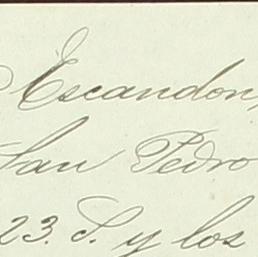 Escandon,
San Pedro
23. S. y los